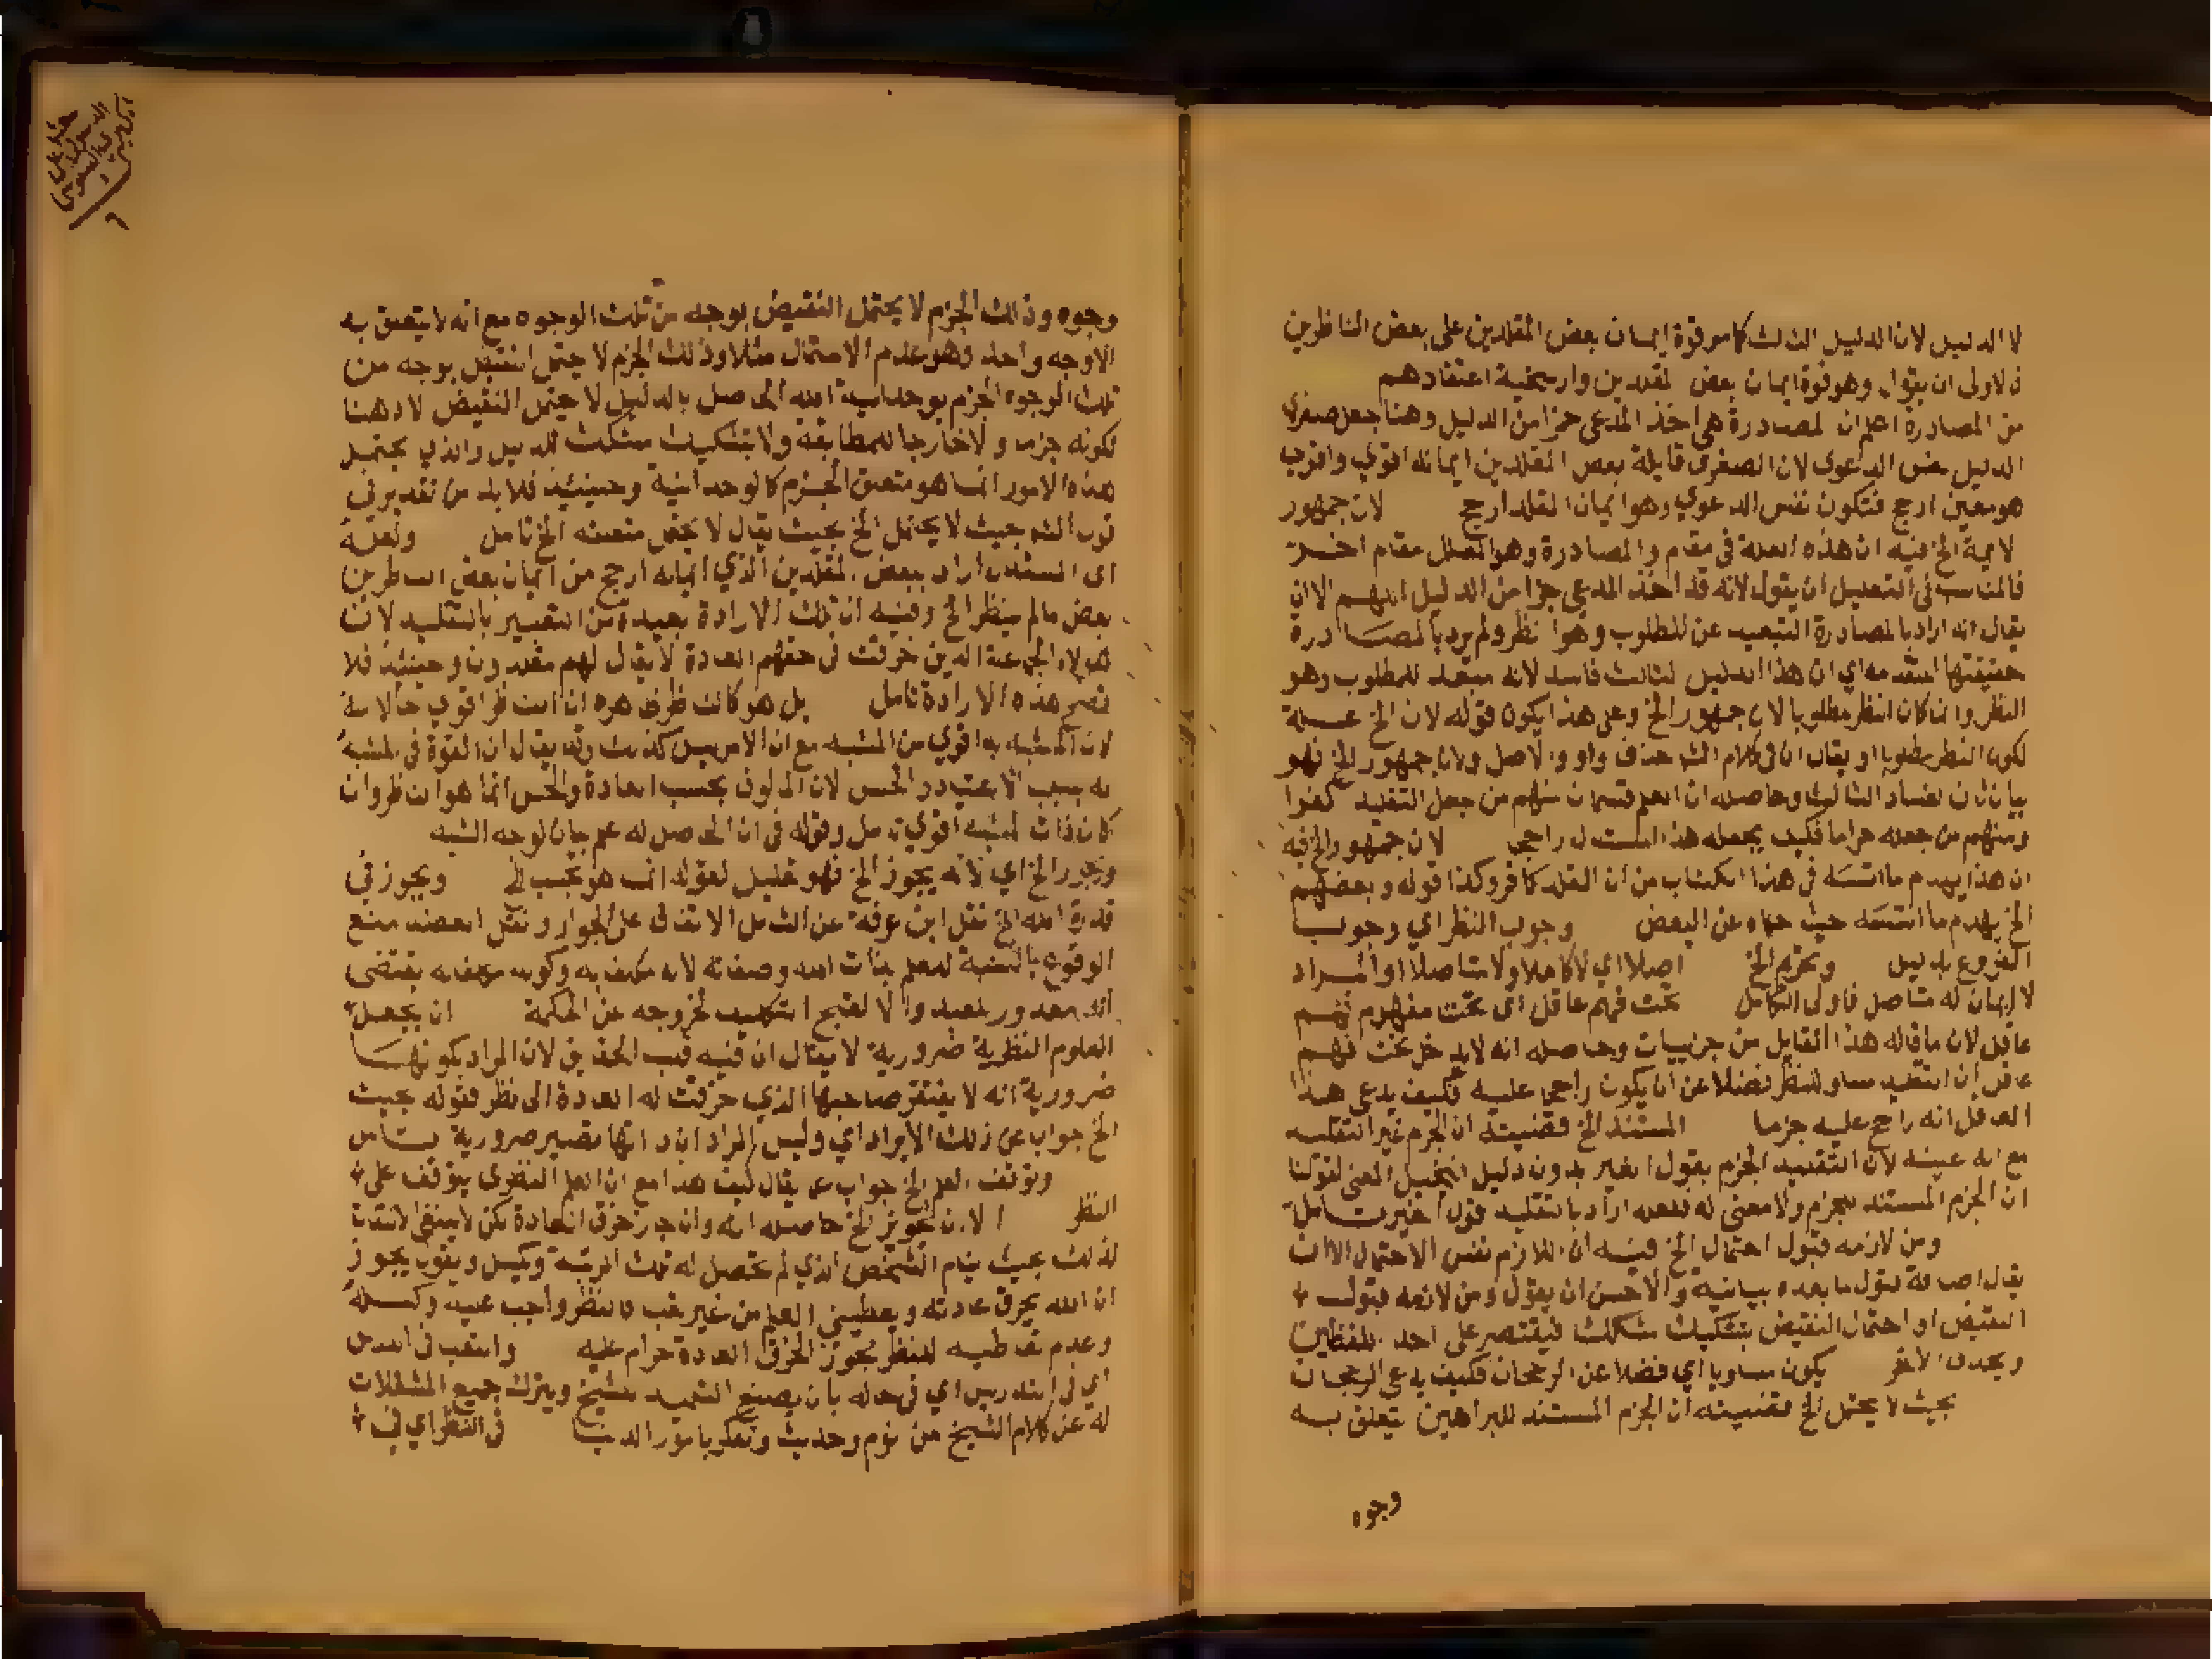 لا الدليل لان الدليل الثالث كما مر قوة ايمان بعض المقلدين على بعض الناظرين
فالاولى ان يقول وهو قوة ايمان بعض المقلدين وارجحية اعتقادهم
من المصادرة اعلم ان المصادرة هي اخذ المدعى جزا من الدليل وهنا جعل صغرى
الدليل بعض الدعوى لان الصغرى قايلة بعض المقلدين ايمانه اقوى واقوى
هو معين ارجح فتكون نفس الدعوى وهو ايمان المقلد ارجح لان جمهور
الايمة الخ فيه ان هذه العلة في مقام والمصادرة وهو المعلل مقام اخر
فالمناسب في التعليل ان يقول لانه قد اخذ المدعى جزا من الدليل اللهم الا ان
يقال انه اراد بالمصادرة التبعيد عن المطلوب وهو النظر ولم يرد بالمصادرة
حقيقتها المتقدمه اي ان هذا الدليل الثالث فاسد لانه مبعد للمطلوب وهو
النظر وانما كان النظر مطلوبا لان جمهور الخ وعلى هذا يكون قوله لان الخ علة
لكون النظر مطلوبا او يقال ان في كلام الشه حذف واو والاصل ولان جمهور الخ فهو
بيان ثان لفساد الثالث وحاصله ان العلم قسمان منهم من جعل التقليد كفرا
ومنهم من جعله حراما فكيف يجعله هذا المستدل راجحا لان جمهور الخ فيه
ان هذا يهدم ما اسسه في هذا الكتاب من ان المقلد كافر وكذا قوله وبعضهم
الخ يهدم ما اسسه حيث حكاه عن البعض وجوب النظر اي وجوب
الفروع بالدليل ويحرم الخ اصلا اي لا كاملا ولا متاصلا او المراد
لا ايمان له متاصل فاولى الكامل تحت فهم عاقل اي تحت مفهوم فهم
عاقل لان ما قاله هذا القايل من جزييات وحاصله انه لا يدخل تحت فهم
عاقل ان التقليد مساو للنظر فضلا عن ان يكون راجحا عليه فكيف يدعى هذا
العاقل انه راجح عليه جزما المستند الخ فقضيته ان الجزم غير التقليد
مع انه عينه لان التقليد الجزم بقول الغير بدون دليل المعنى لقولنا
ان الجزم المستند للجزم ولا معنى له فلعله اراد بالتقليد قول الغير تامل
ومن لازمه قبول احتمال الخ فيه ان اللازم نفس الاحتمال الا ان
يقال اضافة قبول لما بعده بيانية والاحسن ان يقول ومن لازمه قبول
النقيض او احتمال النقيض بتشكيك مشكك فيقتصر على احد اللفظين
ويحذف الاخر يكون مساويا اي فضلا عن الرجحان فكيف يدعى الرجحان
بحيث لا يحتمل الخ فقضيته ان الجزم المستند للبراهين يتعلق به
وجوه
وجوه وذلك الجزم لا يحتمل النقيض بوجه من تلك الوجوه مع انه لا يتعلق به
الا وجه واحد وهو عدم الاحتمال مثلا وذلك الجزم لا يحتمل النقيض بوجه من
تلك الوجوه الجزم بوحدانية الله الحاصل بالدليل لا يحتمل النقيض لا ذهنا
لكونه جزما ولا خارجا للمطابقة ولا بتشكيك مشكك للدليل والذي يحتمل
هذه الامور انما هو متعلق الجزم كالوحدانية وحينئذ فلا بد من تقدير في
قول الشه بحيث لا يحتمل الخ بحيث يقال لا يحتمل متعلقه الخ تامل ولعله
اي المستدل اراد ببعض المقلدين الذي ايمانه ارجح من ايمان بعض الناظرين
بعض ما لم ينظر الخ وفيه ان تلك الارادة بعيدة من التعبير بالتقليد لان
هولاء الجماعة الذين خرقت في حقهم العادة لا يقال لهم مقلدون وحينئذ فلا
تصح هذه الارادة تامل بل هو كالناظر ظاهره ان الناظر اقوى حالا منه
لان المشبه به اقوى من المشبه مع ان الامر ليس كذلك وقد يقال ان القوة في المشبه
به بسبب الاعتياد والحس لان المالوف بحسب العادة والحس انما هو الناظر وان
كان ذات المشبه اقوى تامل وقوله في ان الحاصل له علم بيان لوجه الشبه
ويجوز الخ اي لانه يجوز الخ فهو تعليل لقوله انما هو بحسب الخ ويجوز في
قدرة الله الخ نقل ابن عرفة عن الشامل الاتفاق على الجواز ونقل بعضه منع
الوقوع بالنسبة للعلم بذات الله وصفاته لانه مكلف به وكونه مكلف به يقتضي
انه مقدور للعبد والا لقبح التكليف لخروجه عن الحكمة ان يجعل
العلوم النظرية ضرورية لا يقال ان فيه قلب الحقايق لان المراد بكونها
ضرورية انه لا يفتقر صاحبها الذي خرقت له العادة الى نظر فقوله بحيث
الخ جواب عن ذلك الايراد اي وليس المراد ان ذاتها تصير ضرورية تامل
وتوقف العلم الخ جواب عما يقال كيف هذا مع ان العلم النظري يتوقف على
النظر الا ان تجويز الخ حاصله انه وان جاز خرق العادة لكن لا ينبغي الالتفات
لذلك بحيث ينام الشخص الذي لم تحصل له تلك المرتبة ويكسل ويقول يجوز
ان الله يخرق عادته ويعطيني العلم من غير تعب فالنظر واجب عليه وكسله
وعدم تعاطيه للنظر لجواز الخرق العادة حرام عليه والتعب في الدرس
اي في التدريس اي في حاله بان يصغي التلميذ للشيخ ويترك جميع المشغلات
له عن كلام الشيخ من نوم وحديث وتفكر بامور الدنيا في النظر اي في